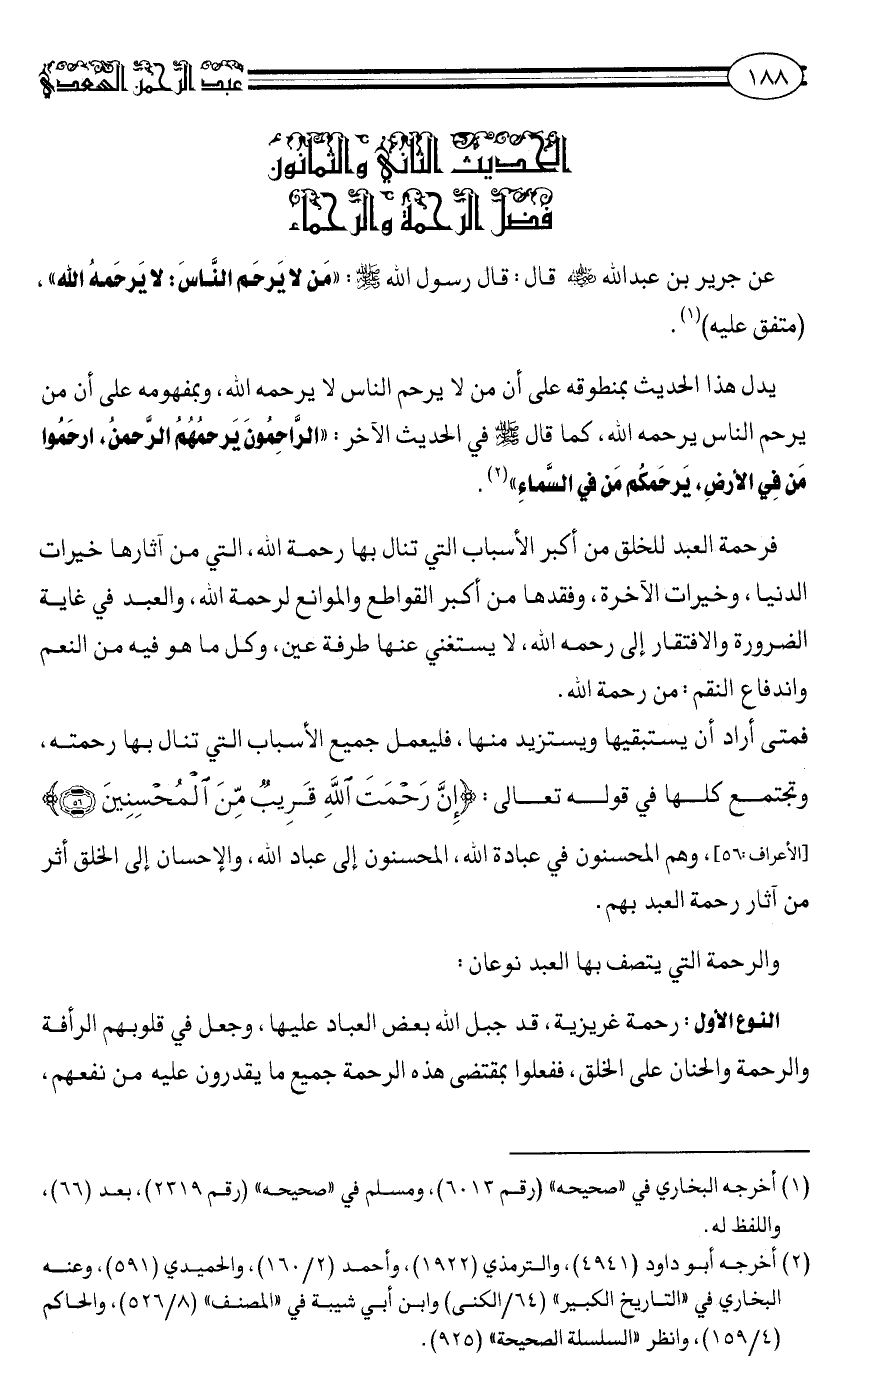 ١٨٨
عبد الرحمن السعدي
الحديث الثاني والثمانون
فضل الرحمة والرحماء
عن جرير بن عبدالله رضي الله عنه قال: قال رسول الله ﷺ: «مَن لا يَرحَم النَّاسَ: لا يَرحَمهُ الله»،
(متفق عليه)(١).
يدل هذا الحديث بمنطوقه على أن من لا يرحم الناس لا يرحمه الله، وبمفهومه على أن من
يرحم الناس يرحمه الله، كما قال ﷺ في الحديث الآخر: «الرَّاحِمُونَ يَرحمُهُمُ الرَّحمنُ، ارحَمُوا
مَن فِي الأرضِ، يَرحَمكُم مَن في السَّماءِ»(٢).
فرحمة العبد للخلق من أكبر الأسباب التي تنال بها رحمة الله، التي من آثارها خيرات
الدنيا، وخيرات الآخرة، وفقدها من أكبر القواطع والموانع لرحمة الله، والعبد في غاية
الضرورة والافتقار إلى رحمه الله، لا يستغني عنها طرفة عين، وكل ما هو فيه من النعم
واندفاع النقم: من رحمة الله.
فمتى أراد أن يستبقيها ويستزيد منها، فليعمل جميع الأسباب التي تنال بها رحمته،
وتجتمع كلها في قوله تعالى: ﴿إِنَّ رَحْمَتَ ٱللَّهِ قَرِيبٌ مِّنَ ٱلْمُحْسِنِينَ ٥٦﴾
[الأعراف:٥٦]، وهم المحسنون في عبادة الله، المحسنون إلى عباد الله، والإحسان إلى الخلق أثر
من آثار رحمة العبد بهم.
والرحمة التي يتصف بها العبد نوعان:
النوع الأول: رحمة غريزية، قد جبل الله بعض العباد عليها، وجعل في قلوبهم الرأفة
والرحمة والحنان على الخلق، ففعلوا بمقتضى هذه الرحمة جميع ما يقدرون عليه من نفعهم،
(١) أخرجه البخاري في «صحيحه» (رقم ٦٠١٣)، ومسلم في «صحيحه» (رقم ٢٣١٩)، بعد (٦٦)،
واللفظ له.
(٢) أخرجه أبو داود (٤٩٤١)، والترمذي (١٩٢٢)، وأحمد (٢/ ١٦٠)، والحميدي (٥٩١)، وعنه
البخاري في «التاريخ الكبير» (٦٤/الكنى) وابن أبي شيبة في «المصنف» (٨/ ٥٢٦)، والحاكم
(٤/ ١٥٩)، وانظر «السلسلة الصحيحة» (٩٢٥).